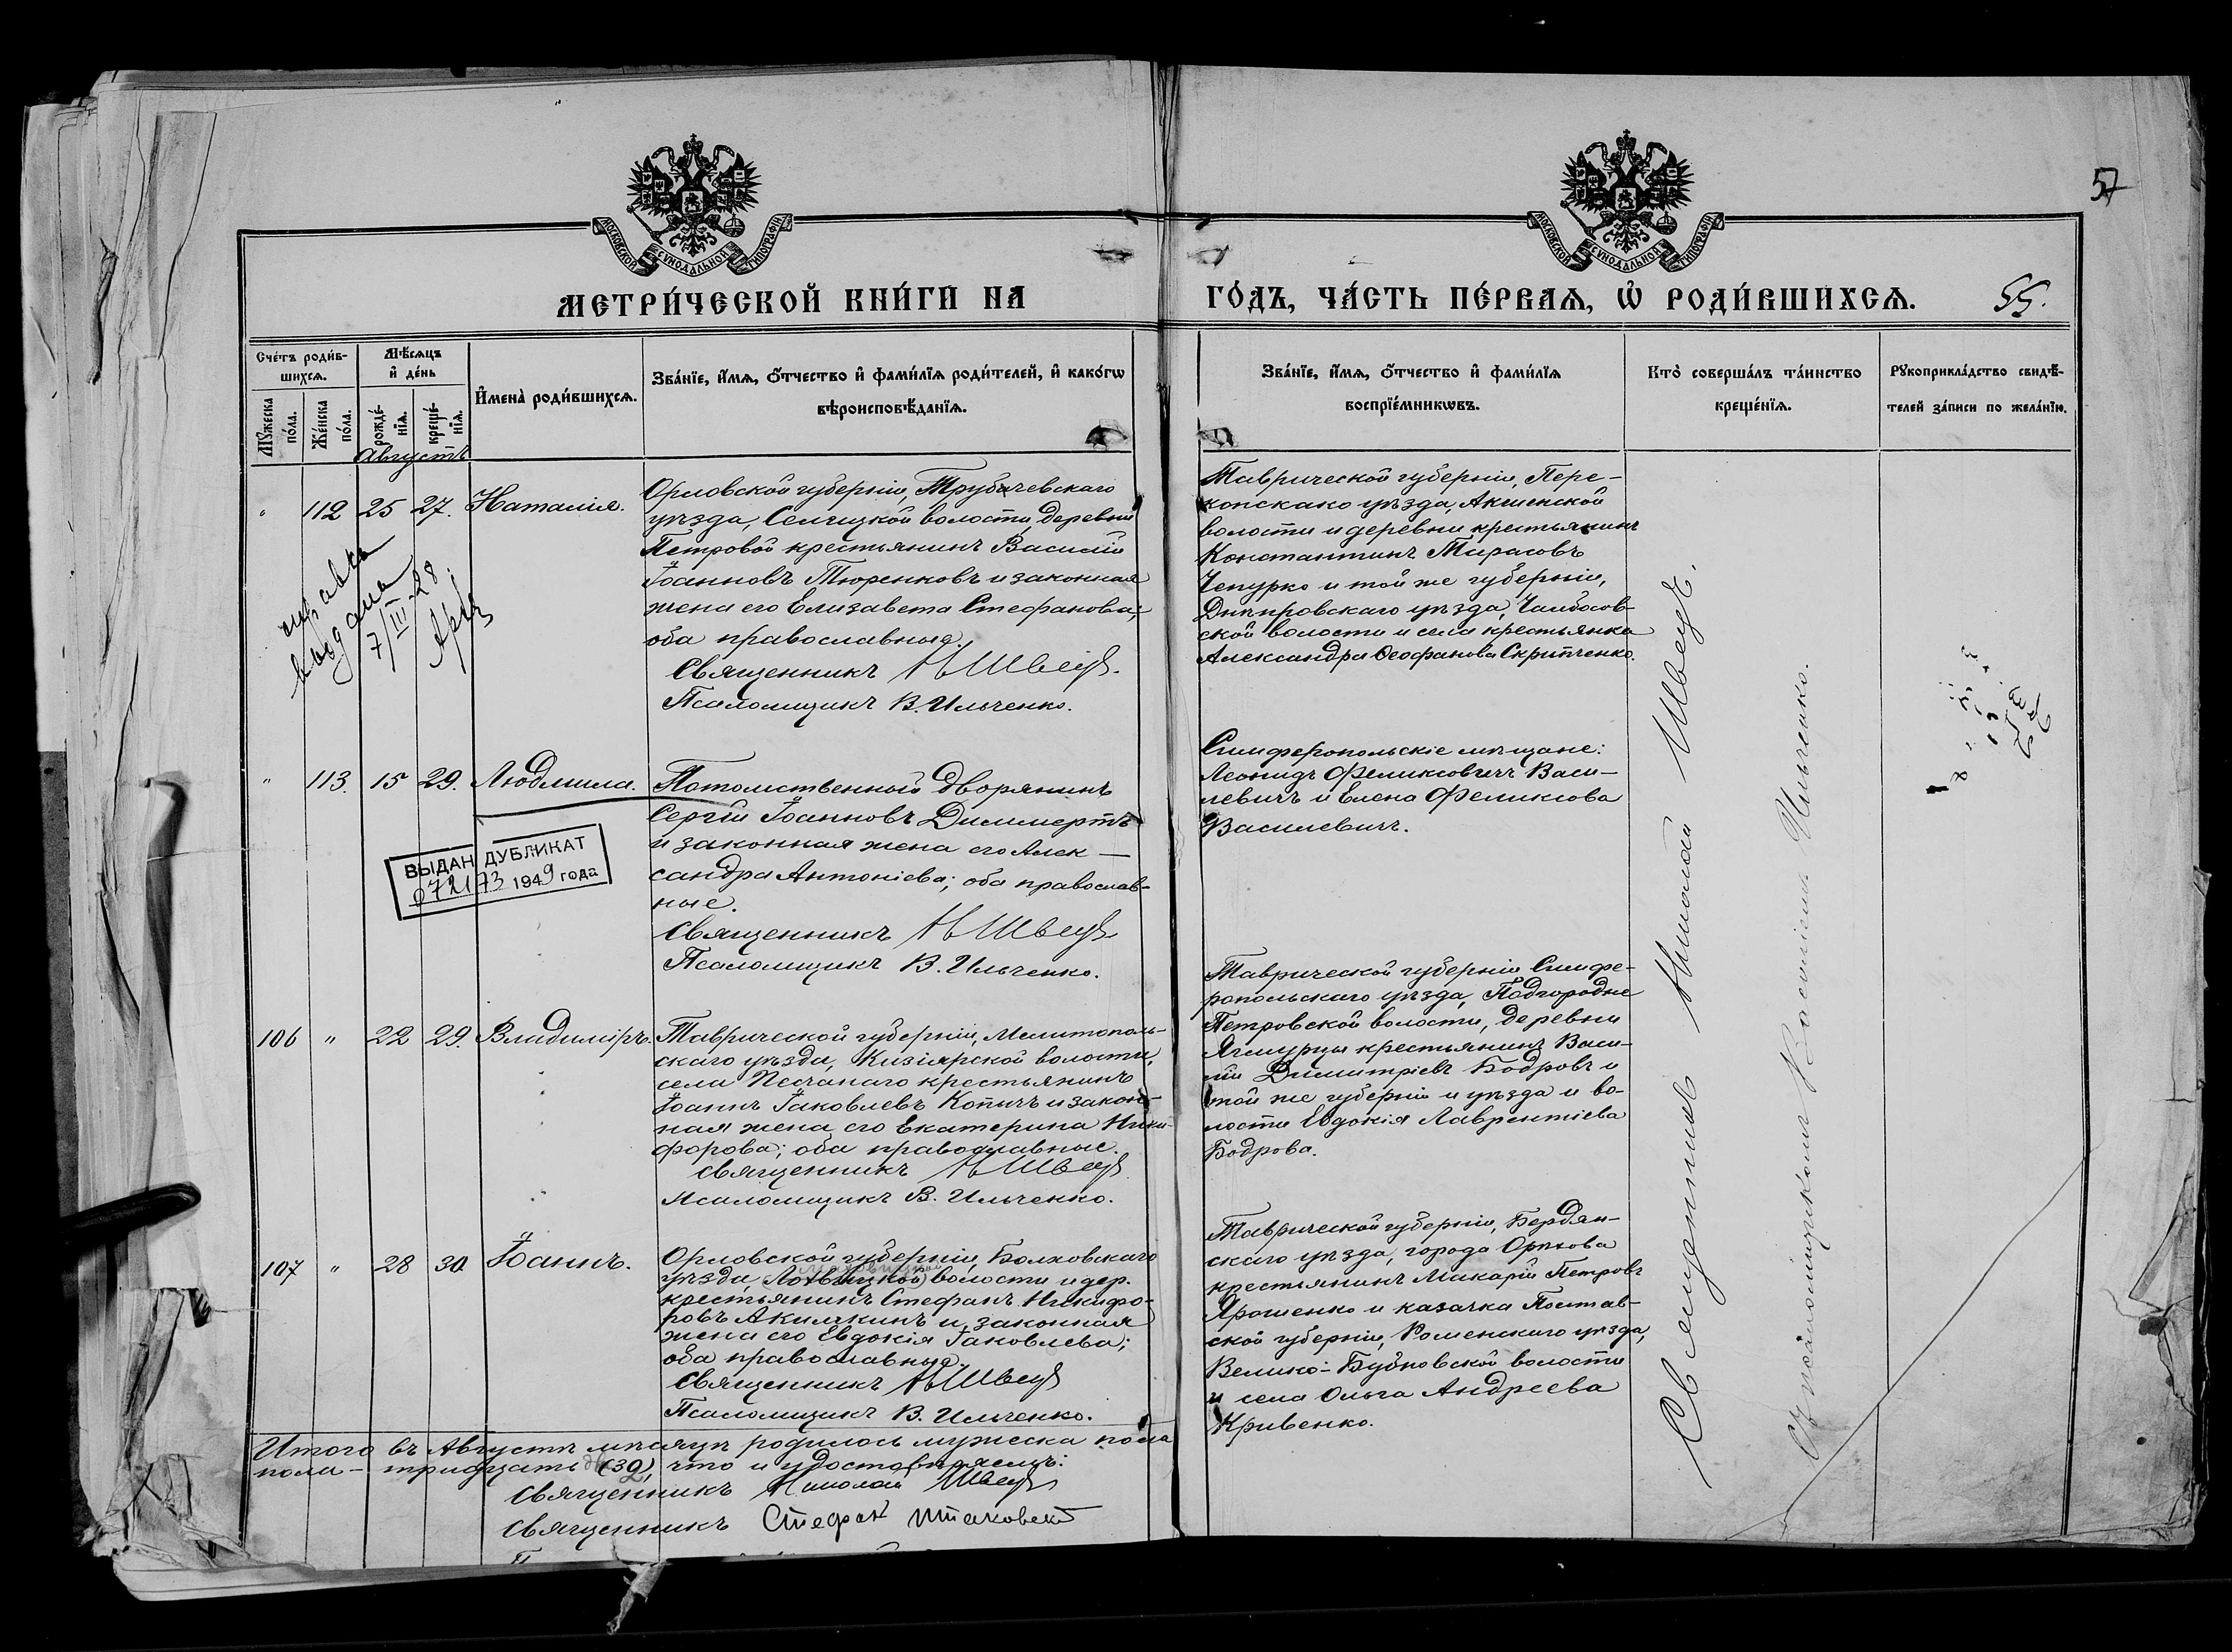 57
МОСКОВСКОЙ СѴНОДАЛЬНОЙ ТИПОГРАФІИ
МОСКОВСКОЙ СѴНОДАЛЬНОЙ ТИПОГРАФІИ
МЕТРИ́ЧЕСКОЙ КНИ́ГИ НА
ГО́ДЪ, ЧА́СТЬ ПЕ́РВАѦ, Ѡ҆ РОДИ́ВШИХСѦ.
55.
Сче́тъ роди́в-
шихсѧ.
Мѣ́сѧцъ
и҆ де́нь
Мꙋ́жеска
по́ла.
Же́нска
по́ла.
рожде́-
нїѧ.
креще́-
нїѧ.
И҆мена̀ роди́вшихсѧ.
Зва́нїе, и҆́мѧ, ѻ҆́тчество и҆ фами́лїѧ роди́телей, и҆ како́гѡ
вѣроисповѣ́данїѧ.
Зва́нїе, и҆́мѧ, ѻ҆́тчество и҆ фами́лїѧ
воспрїе́мникѡвъ.
Кто̀ соверша́лъ та́инство
креще́нїѧ.
Рꙋкоприкла́дство свидѣ́-
телей за́писи по жела́нїю.
Августъ
" 112 25 27. Наталія.
Орловской губерніи, Трубчевскаго
уѣзда, Селецкой волости, деревни
Петровой крестьянинъ Василій
Іоанновъ Тюренковъ и законная
жена его Елизавета Стефанова;
оба православные.
Священникъ Н Швецъ.
Псаломщикъ В. Ильченко.
Таврической губерніи, Пере-
копскако уѣзда, Акшенской
волости и деревни крестьянинъ
Константинъ Тарасовъ
Чепурко и той же губерніи,
Днѣпровскаго уѣзда, Чалбасов-
ской волости и села крестьянка
Александра Ѳеофанова Скрипченко.
справка
выдана
7/III-28.
" 113. 15 29. Людмила.
Потомственный дворянинъ
Сергій Іоанновъ Диммертъ
и законная жена его Алек-
сандра Антоніева; оба православ-
ные.
Священникъ Н Швецъ
Псаломщикъ В. Ильченко.
Симферопольскіе мѣщане:
Леонидъ Феликсовичъ Васи-
левичъ и Елена Феликсова
Василевичъ.
ВЫДАН ДУБЛИКАТ
072173 1949 года
106 " 22 29. Владиміръ.
Таврической губерніи, Мелитополь-
скаго уѣзда, Кизіярской волости,
села Песчанаго крестьянинъ
Іоаннъ Іаковлевъ Копычъ и закон-
ная жена его Екатерина Ники-
форова; оба православные.
Священникъ Н Швецъ
Псаломщикъ В. Ильченко.
Таврической губерніи Симфе-
ропольскаго уѣзда, Подгородне
Петровской волости, деревни
Ягмурцы крестьянинъ Васи-
лій Димитріевъ Бодровъ и
той же губерніи и уѣзда и во-
лости Евдокія Лаврентіева
Бодрова.
107 " 28 30. Іоаннъ.
Орловской губерніи, Болховскаго
уѣзда, волости и дер.
крестьянинъ Стефанъ Никифо-
ровъ Акимкинъ и законная
жена его Евдокія Іаковлева;
оба православные.
Священникъ Н Швецъ
Псаломщикъ В. Ильченко.
Таврической губерніи, Бердян-
скаго уѣзда, города Орѣхова
крестьянинъ Макарій Петровъ
Ярошенко и казачка Полтав-
ской губерніи, Роменскаго уѣзда,
Велико-Бубновской волости
и села Ольга Андреева
Кривенко.
Священникъ Николай Швецъ.
Съ псаломщикомъ Василіемъ Ильченко.
Итого въ Августѣ мѣсяцѣ родилось мужеска пола
пола - тридцать (32), что и удостовѣряемъ:
Священникъ Николай Швецъ
Священникъ Стефан